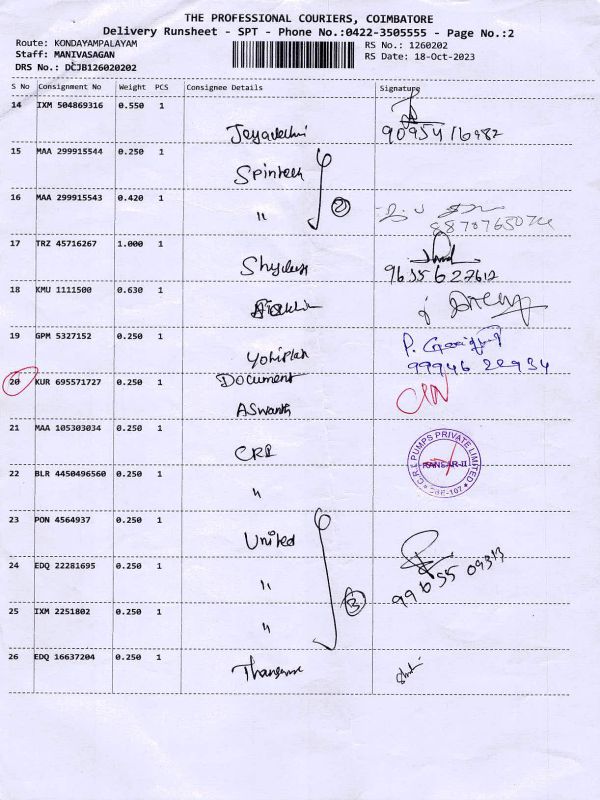 THE PROFESSIONAL COURIERS, COIMBATORE
Delivery Runsheet - SPT - Phone No.:0422-3505555 - Page No.:2
Route: KONDAYAMPALAYAM
Staff: MANIVASAGAN
DRS No.: DCJB126020202
RS No.: 1260202
RS Date: 18-Oct-2023
S No Consignment No Weight PCS Consignee Details Signature
14 IXM 504869316 0.550 1
90954 16982
15 MAA 299915544 0.250 1 Spinteck
16 MAA 299915543 0.420 1 " 2
8870765074
17 TRZ 45716267 1.000 1
9655627612
18 KMU 1111500 0.630 1
19 GPM 5327152 0.250 1
99946 22934
20 KUR 695571727 0.250 1 Document
Aswanth
21 MAA 105303034 0.250 1 CRI
C.R.I. PUMPS PRIVATE LIMITED
22 BLR 4450496560 0.250 1 "
23 PON 4564937 0.250 1 United
24 EDQ 22281695 0.250 1 "
99655 09313
25 IXM 2251802 0.250 1 " 3
26 EDQ 16637204 0.250 1